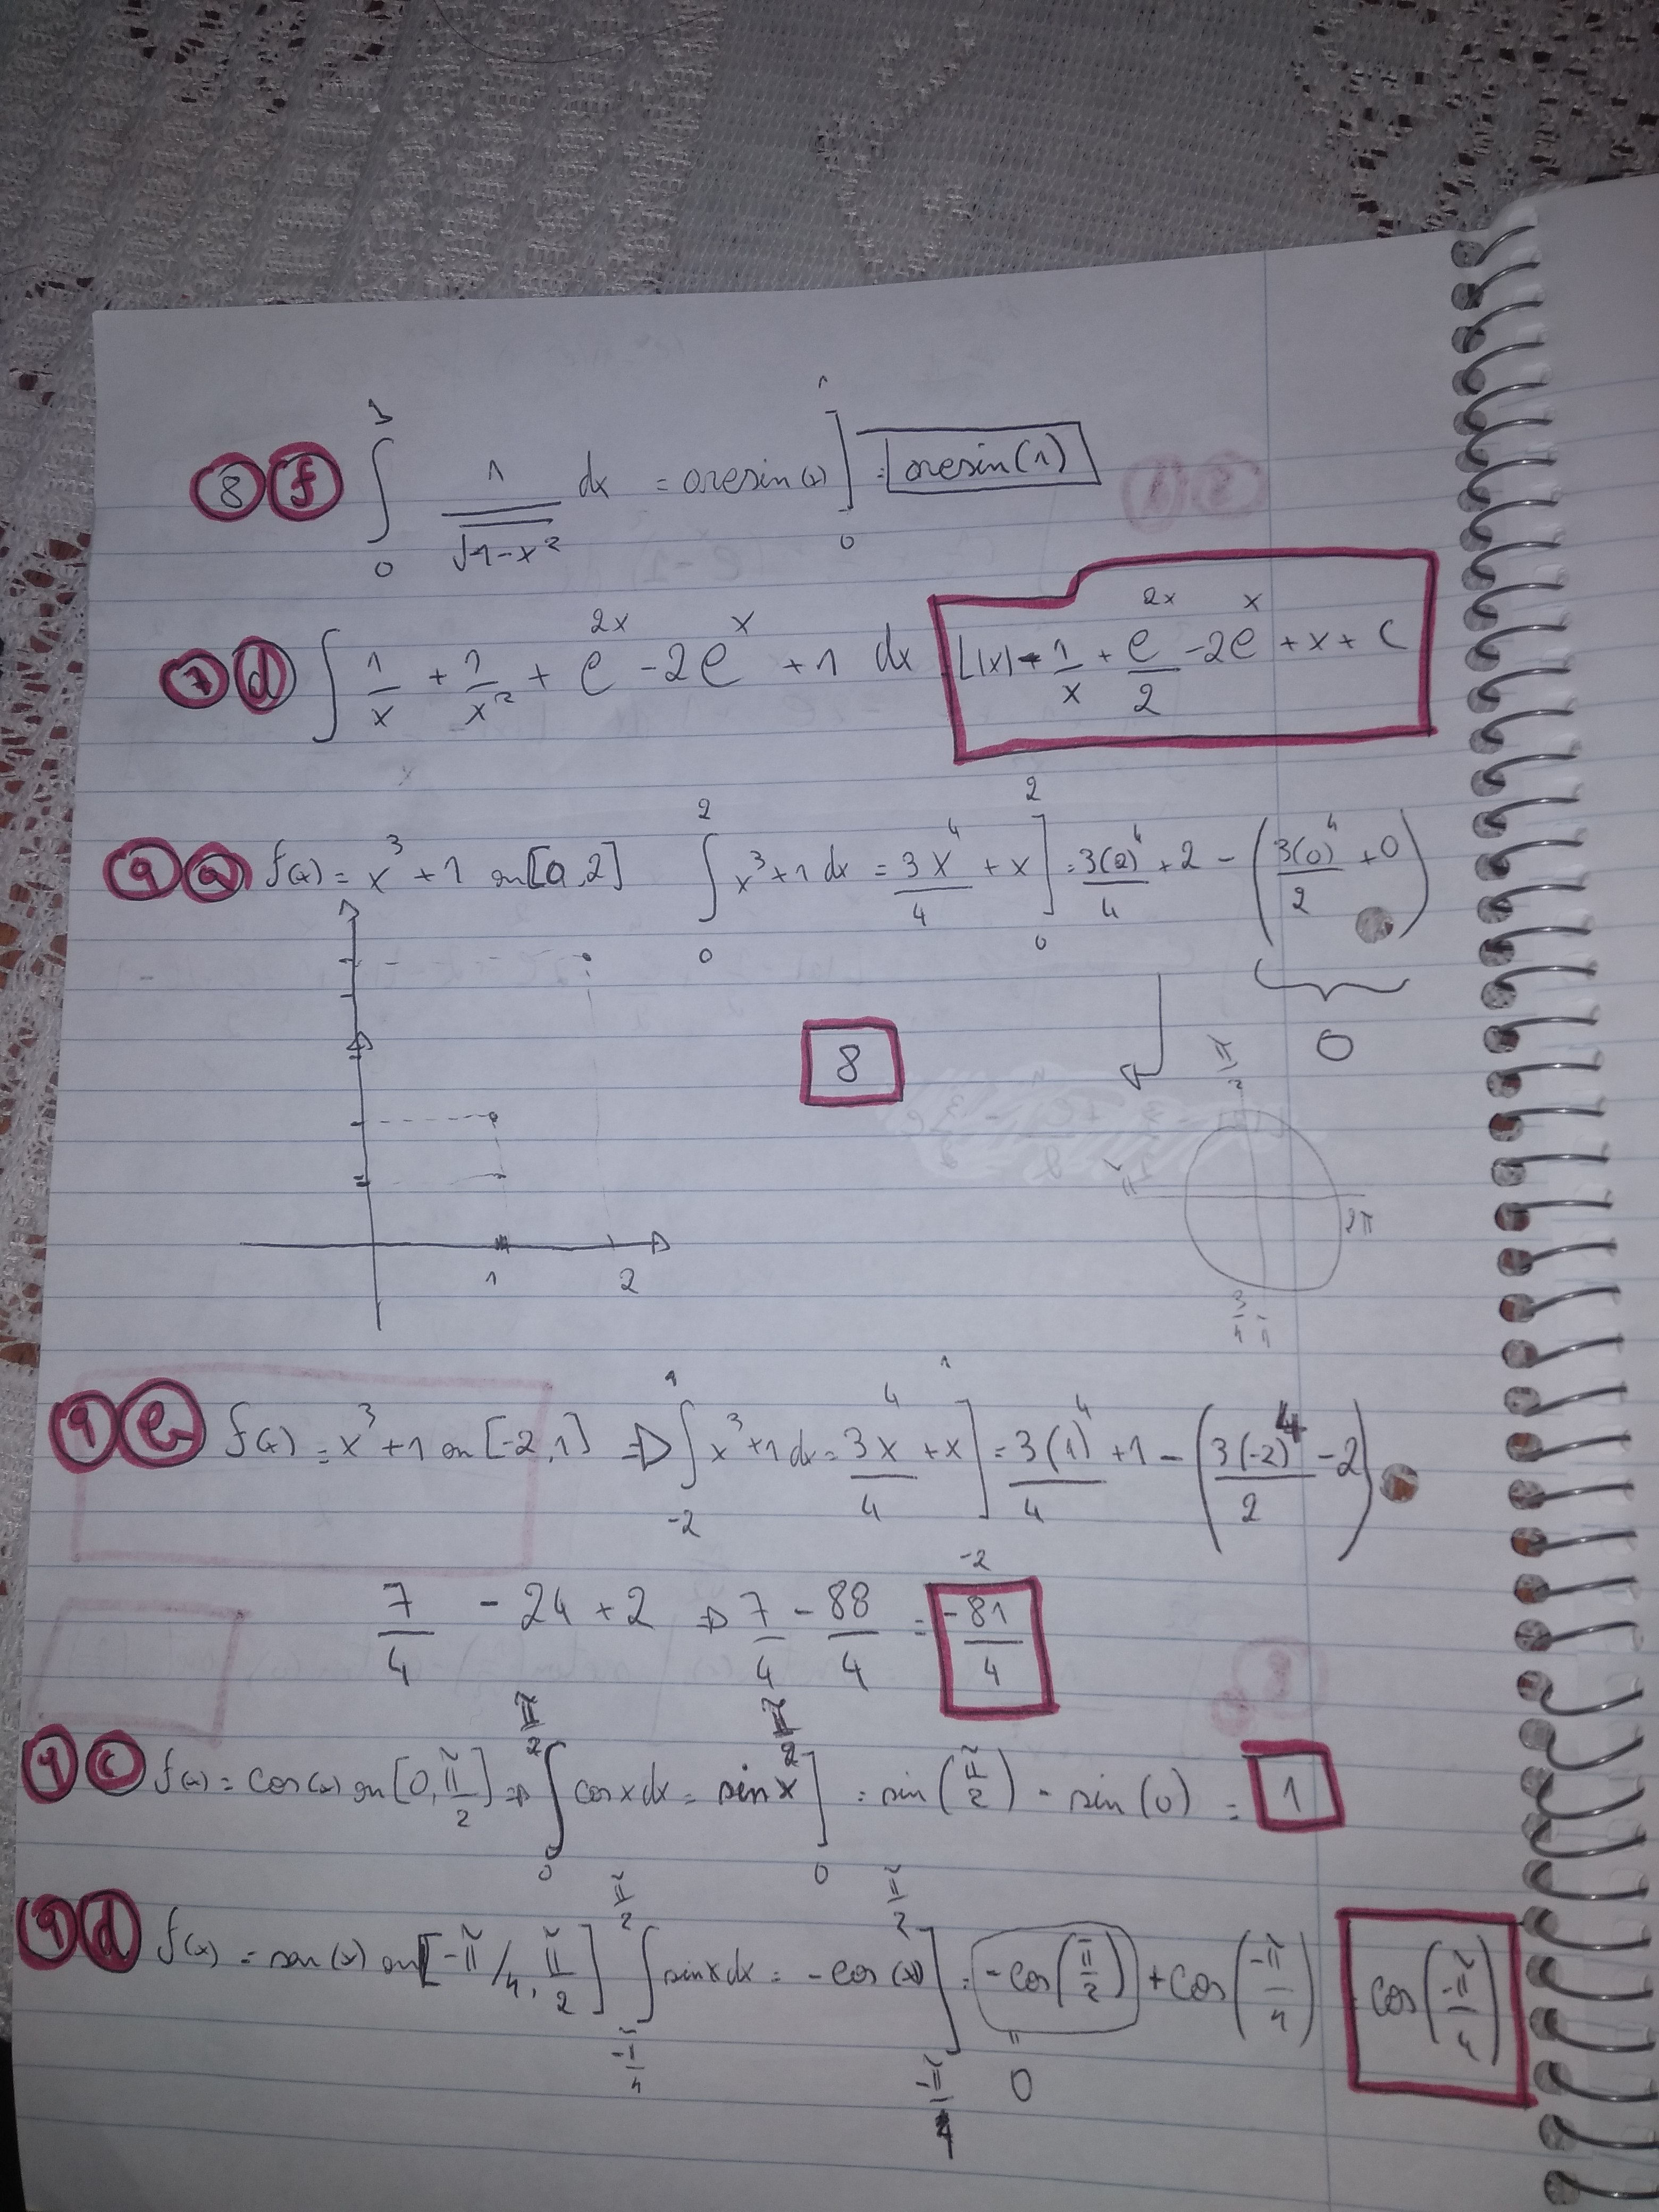 8 f ∫₀¹ 1/√(1-x²) dx = arcsin(x)]₀¹ = arcsin(1)
7 d ∫ 1/x + 1/x² + e^(2x) - 2e^x + 1 dx L|x| - 1/x + e^(2x)/2 - 2e^x + x + C
9 a f(x) = x³ + 1 on [0,2] ∫₀² x³ + 1 dx = 3x⁴/4 + x]₀² = 3(2)⁴/4 + 2 - (3(0)⁴/2 + 0)
0
8
π/2
π
2π
3/4 π
1 2
9 e f(x) = x³ + 1 on [-2,1] ⇒ ∫₋₂¹ x³ + 1 dx = 3x⁴/4 + x]₋₂¹ = 3(1)⁴/4 + 1 - (3(-2)⁴/2 - 2)
7/4 - 24 + 2 ⇒ 7/4 - 88/4 = -81/4
9 c f(x) = cos(x) on [0, π/2] ⇒ ∫₀^(π/2) cos x dx = sin x]₀^(π/2) = sin(π/2) - sin(0) = 1
9 d f(x) = sen(x) on [-π/4, π/2] ∫_(-π/4)^(π/2) sin x dx = -cos(x)]_(-π/4)^(π/2) = -cos(π/2) + cos(-π/4) cos(-π/4)
= 0